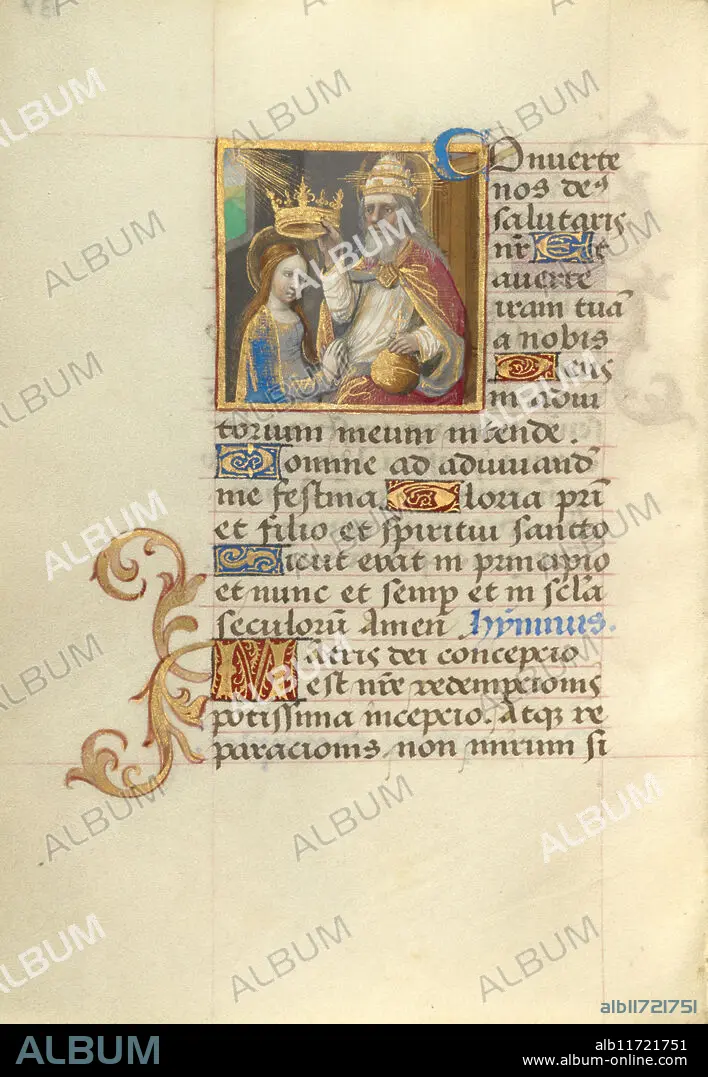 Conuerte
nos deꝰ
salutaris
nr̄ Et
auerte
iram tuā
a nobis
Deus
in adiu
torium meum intende.
Domine ad adiuuand̄
me festina Gloria pr̄i
et filio et spiritui sancto
Sicut erat in principio
et nunc et semꝑ et in scl̄a
seculorū Amen hỹmnus.
Matris dei concepcio
est nr̄e redempcionis
potissima incepcio. Atqꝫ re
paracionis non mirum si
ALBUM
alb11721751
ALBUM
alb11721751
www.album-online.com